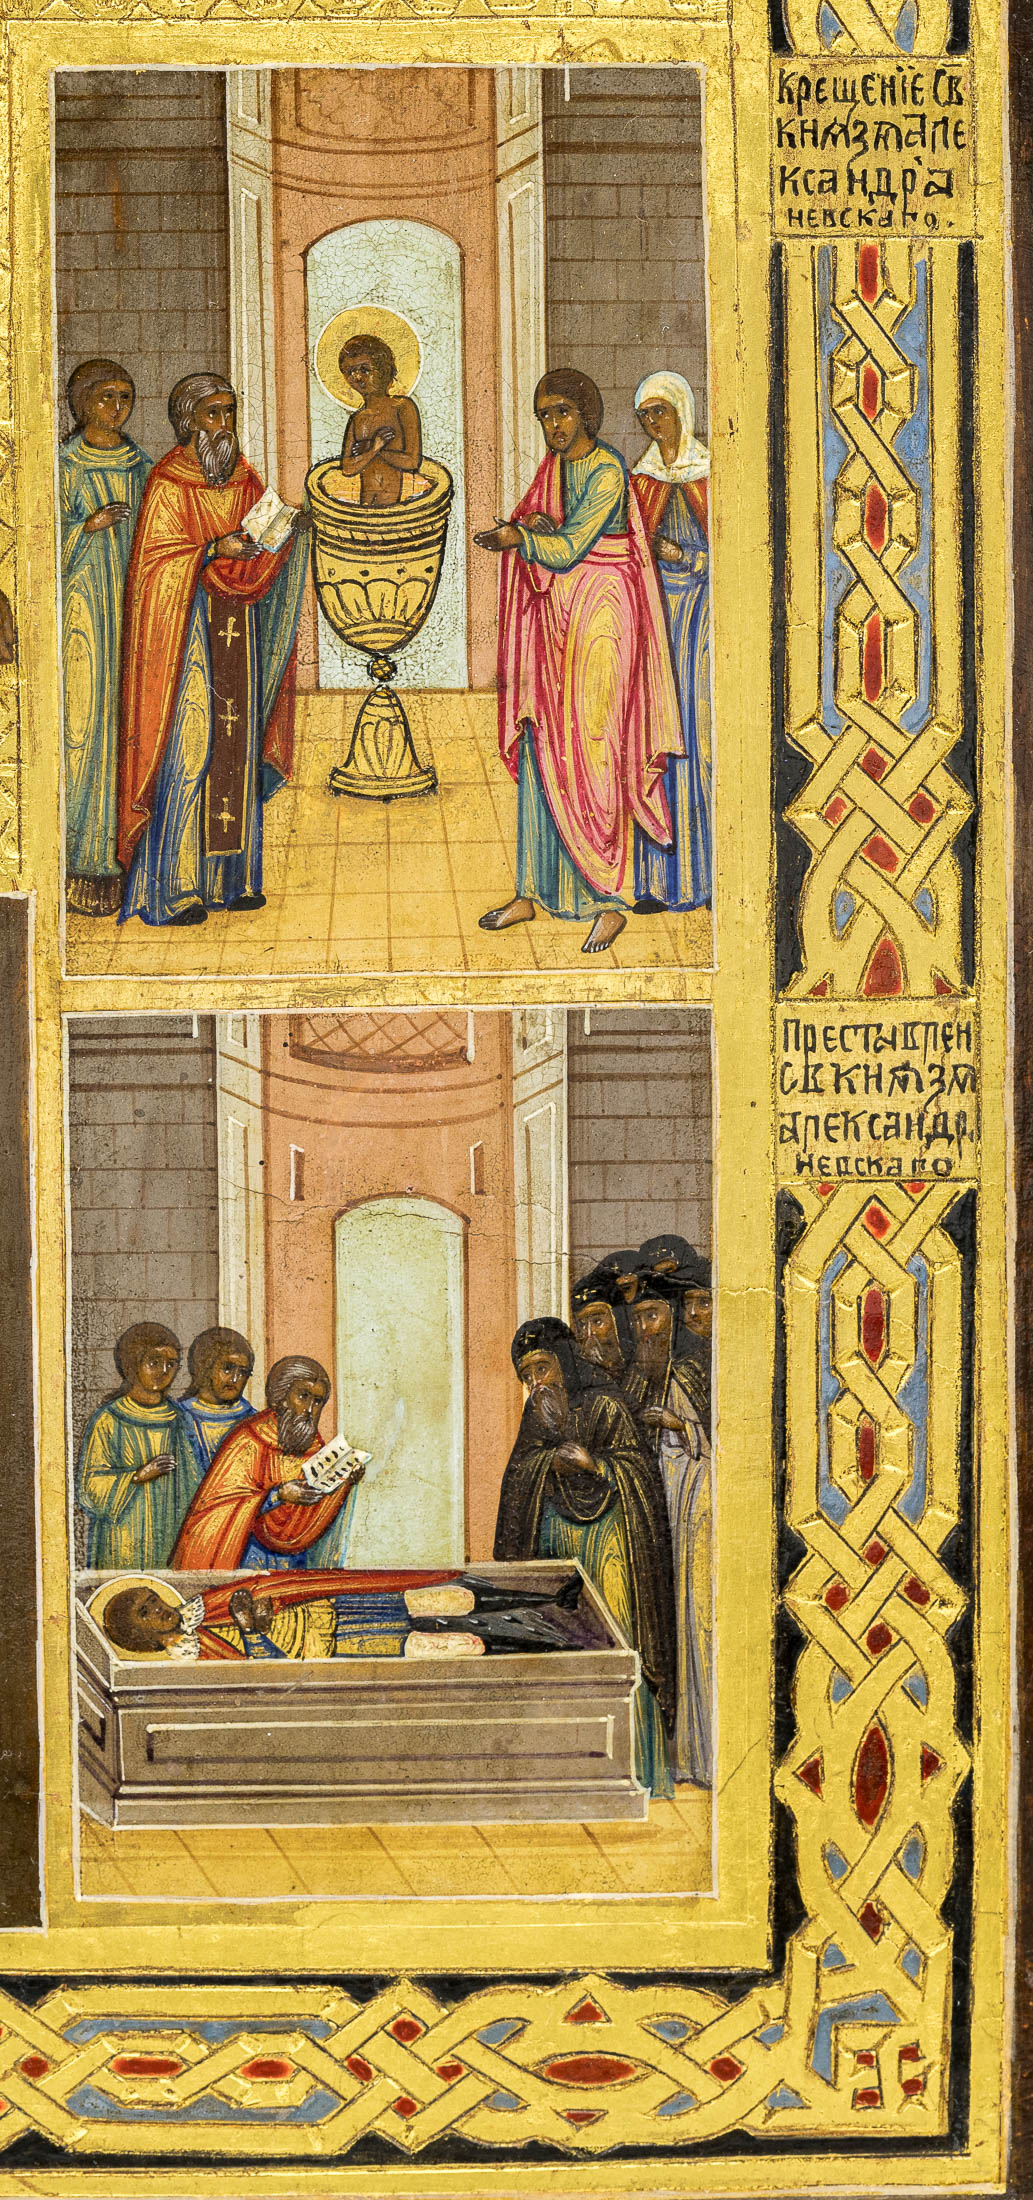 Крещенїе св
кнѧзѧ але
ксандра
невскаго.
Преставлен
св кнѧзѧ
александр
невскаго